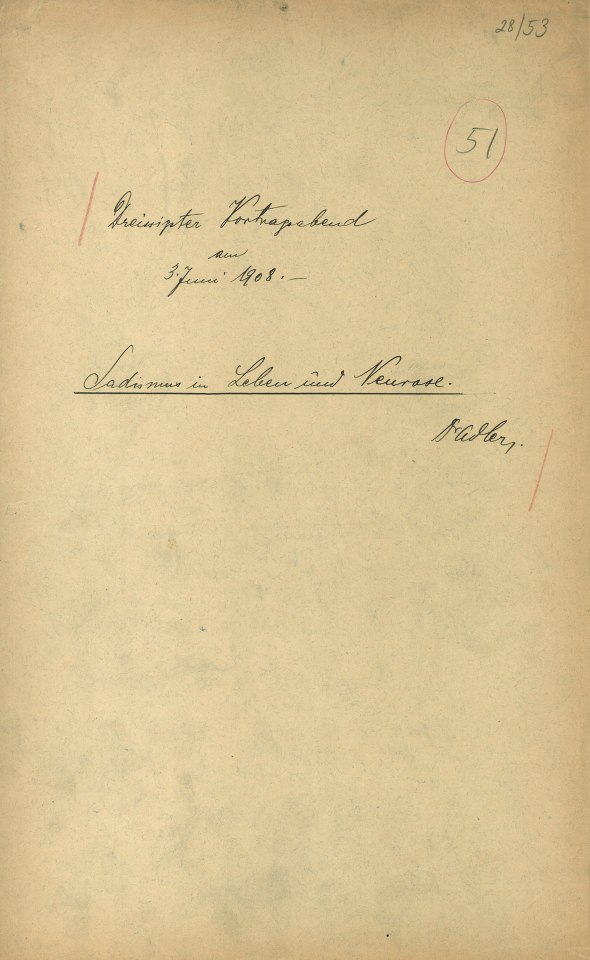 28/53
51
Dreissigster Vortragsabend
am
3. Juni 1908. —
Sadismus in Leben und Neurose.
Dr Adler.